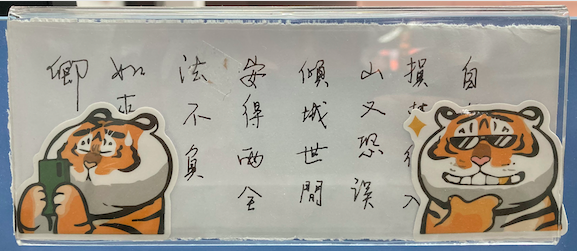 自
損入
山又恐誤
傾城世間
安得两全
法不負
如
卿